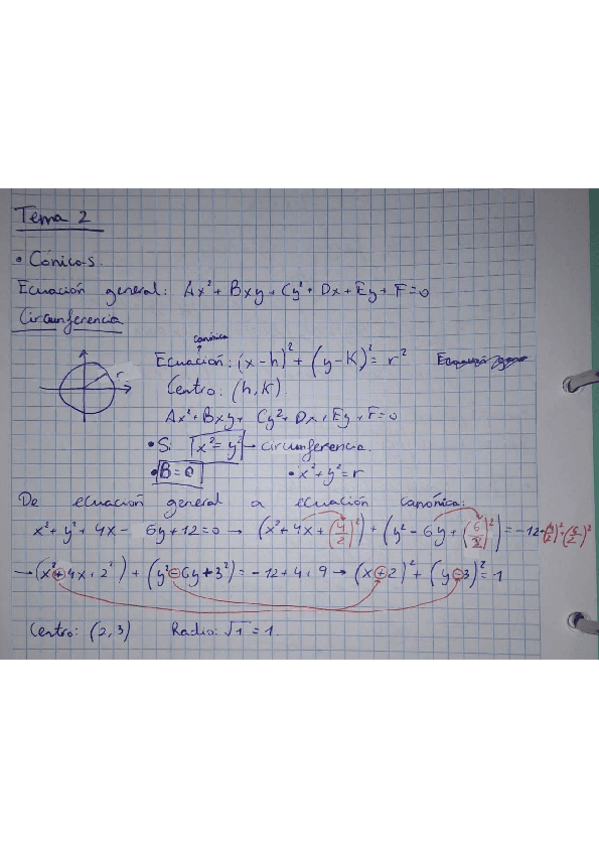 Tema 2
• Cónicas.
Ecuación general: Ax² + Bxy + Cy² + Dx + Ey + F = 0
Circunferencia
canónica
Ecuación: (x-h)² + (y-k)² = r²
r
Centro: (h, k)
Ax² + Bxy + Cy² + Dx + Ey + F = 0
• Si x² = y² → circunferencia.
• B = 0 • x² + y² = r
De ecuación general a ecuación canónica:
x² + y² + 4x - 6y + 12 = 0 → (x² + 4x + (4/2)²) + (y² - 6y + (6/2)²) = -12 + (4/2)² + (6/2)²
→ (x² + 4x + 2²) + (y² - 6y + 3²) = -12 + 4 + 9 → (x + 2)² + (y - 3)² = 1
Centro: (2, 3) Radio: √1 = 1.